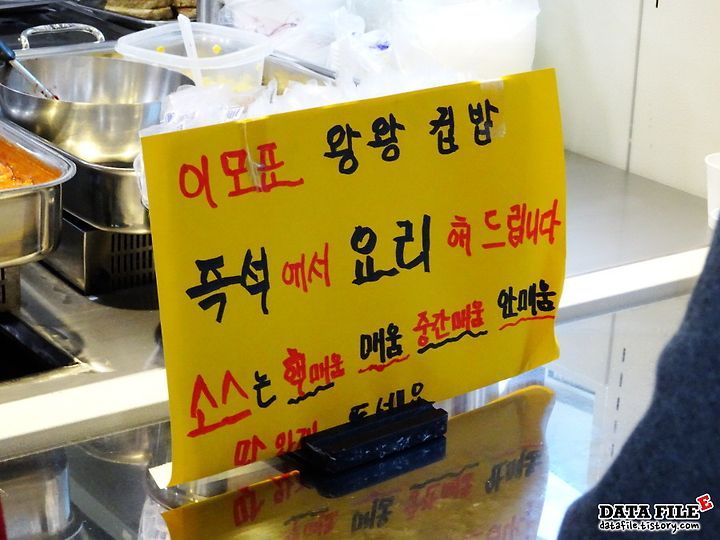 이모표 왕왕 컵밥
즉석에서 요리해 드립니다
소스는 핵매움 매움 중간매움 안매움
DATA FILE
datafile.tistory.com